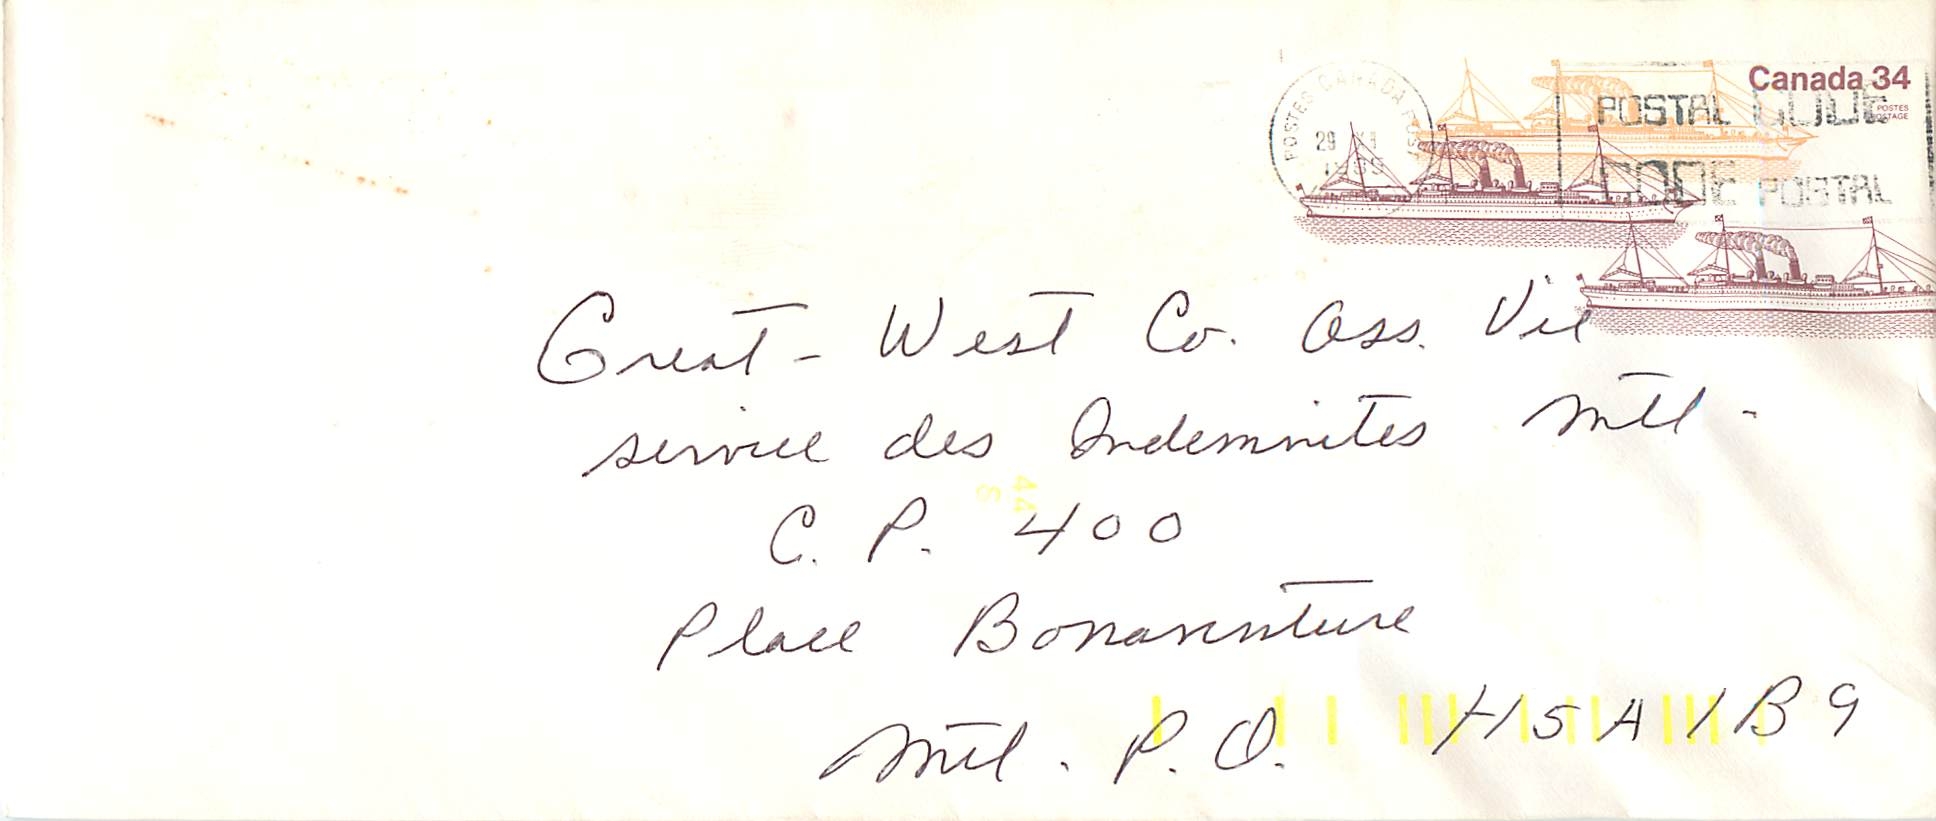 Canada 34
POSTES
POSTAGE
POSTES CANADA POST
29
POSTAL CODE
CODE POSTAL
Great-West Co. Ass. Vie
service des Indemnites Mtl.
44
S
C. P. 400
Place Bonaventure
Mtl. P.Q. H5A 1B9